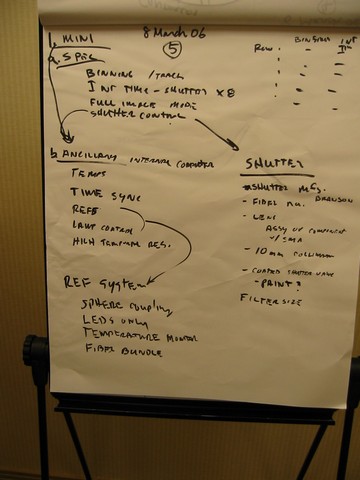 8 March 06
5
1. MINI
a. SPEC
BINNING / TRACK
INT TIME - SHUTTER x8
FULL IMAGE MODE
SHUTTER CONTROL
BINNING INT TIM
Row 1
b. ANCILLARY INTERNAL COMPUTER
TEMPS
TIME SYNC
REFS
LAMP CONTROL
HIGH TEMPORAL RES.
REF SYSTEM
SPHERE COUPLING
LEDS ONLY
TEMPERATURE MONITOR
FIBER BUNDLE
SHUTTER
SHUTTER MFG.
- FIBER N.A.
- LENS
ASSY OF COMPONENT
- 10mm COLLIMATOR
- COATED SHUTTER VANE
- PAINT?
FILTER SIZE